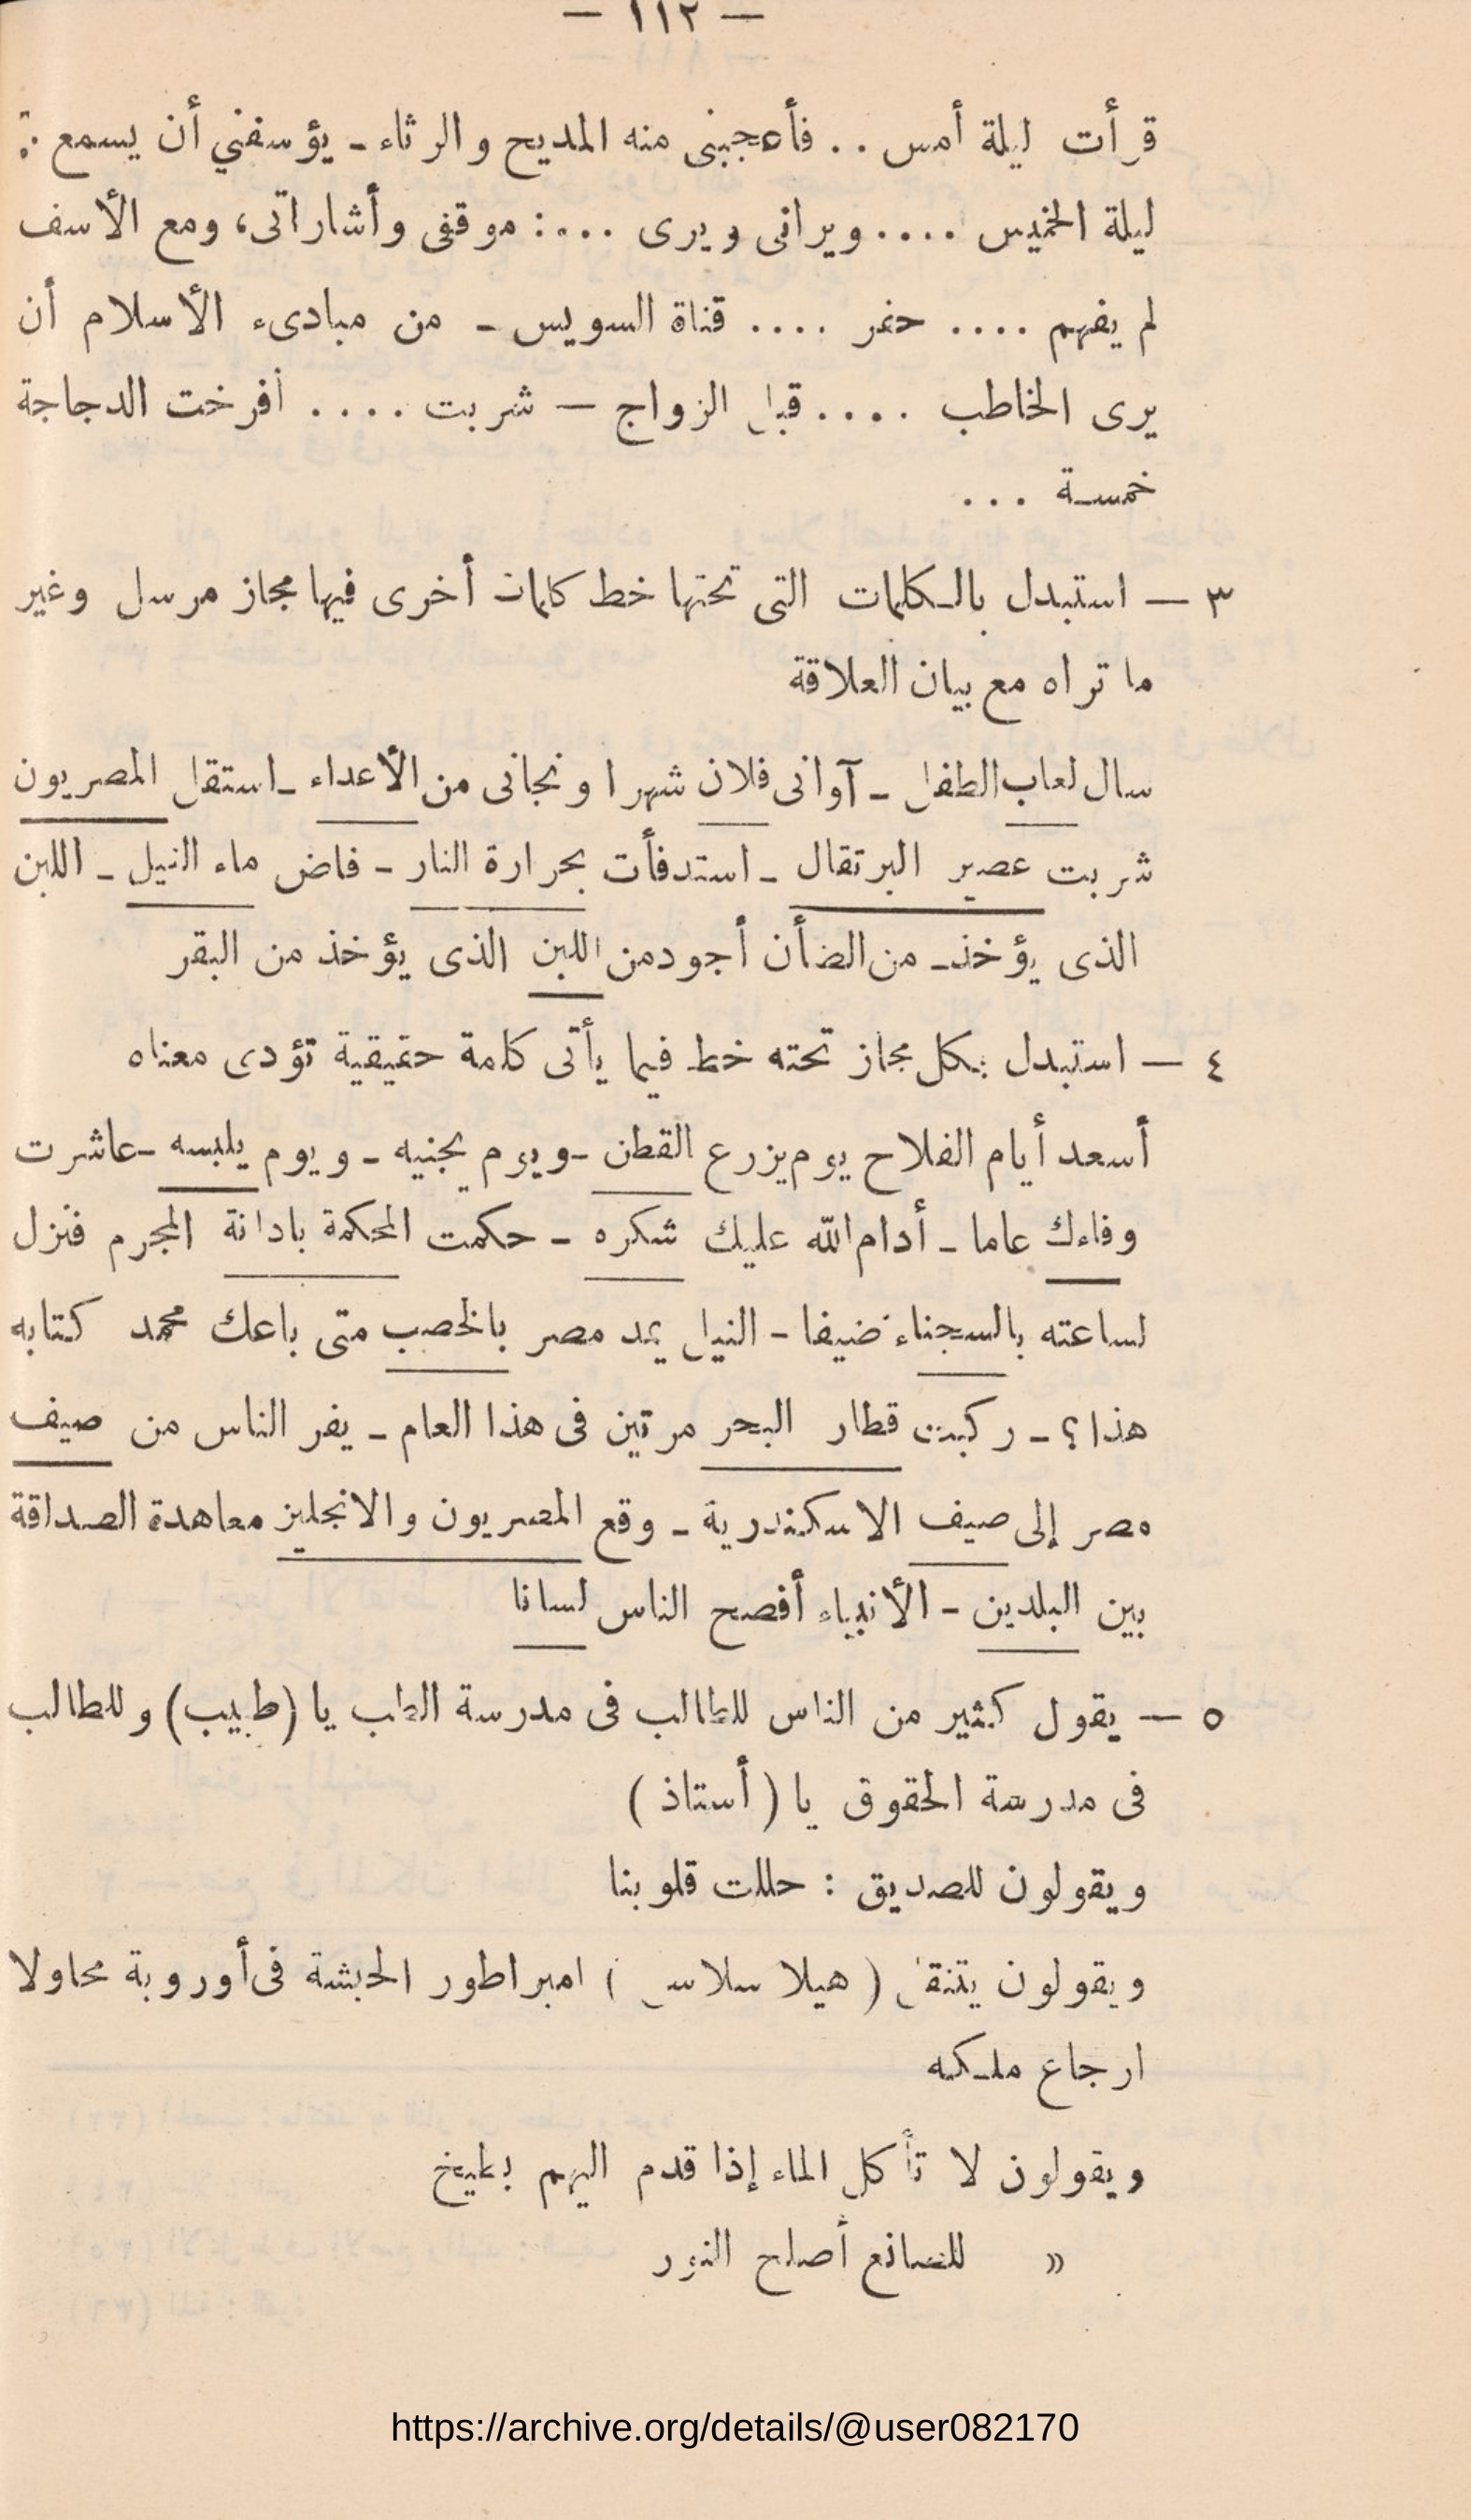 — ١١٢ —
قرأت ليلة أمس .. فأعجبنى منه المديح والرثاء ـ يؤسفني أن يسمع ..
ليلة الخميس .... ويرانى ويرى ....: موقفى وأشاراتى، ومع الأسف
لم يفهم .... حفر .... قناة السويس ـ من مبادىء الأسلام أن
يرى الخاطب .... قبل الزواج — شربت .... أفرخت الدجاجة
خمسة ...
٣ — استبدل بالكلمات التى تحتها خط كلمات أخرى فيها مجاز مرسل وغير
ما تراه مع بيان العلاقة
سال لعاب الطفل ـ آوانى فلان شهرا ونجانى من الأعداء ـ استقل المصريون
شربت عصير البرتقال ـ استدفأت بحرارة النار ـ فاض ماء النيل ـ اللبن
الذى يؤخذ من الضأن أجود من اللبن الذى يؤخذ من البقر
٤ — استبدل بكل مجاز تحته خط فيما يأتى كلمة حقيقية تؤدى معناه
أسعد أيام الفلاح يوم يزرع القطن ـ ويوم يجنيه ـ ويوم يلبسه ـ عاشرت
وفاءك عاما ـ أدام الله عليك شكره ـ حكمت المحكمة بادانة المجرم فنزل
لساعته بالسجناء ضيفا ـ النيل يمد مصر بالخصب متى باعك محمد كتابه
هذا؟ ـ ركبت قطار البحر مرتين فى هذا العام ـ يفر الناس من صيف
مصر إلى صيف الاسكندرية ـ وقع المصريون والانجليز معاهدة الصداقة
بين البلدين ـ الأنبياء أفصح الناس لسانا
٥ — يقول كثير من الناس للطالب فى مدرسة الطب يا (طبيب) وللطالب
فى مدرسة الحقوق يا (أستاذ)
ويقولون للصديق : حللت قلوبنا
ويقولون يتنقل (هيلا سلاسى) امبراطور الحبشة فى أوروبة محاولا
ارجاع ملكه
ويقولون لا تأكل الماء إذا قدم اليهم بطيخ
» للصانع أصلح النور
https://archive.org/details/@user082170